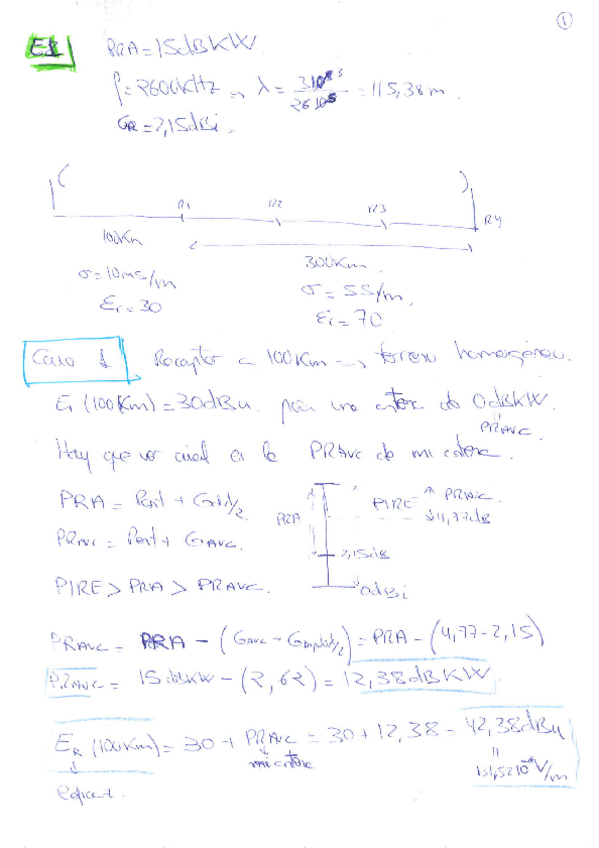 1
E1
PRA = 15dBKW
f = 2600KHz → λ = 3·10⁸ / 26·10⁵ = 115,38m.
GR = 2,15dBi.
R1 R2 R3 R4
100Km 300Km.
σ = 10mS/m σ = 5S/m.
εr = 30 εr = 70
Caso 1 Receptor a 100Km → terreno homogéneo.
E1 (100Km) = 30dBu. para una antena de 0dBKW.
PRAVC
Hay que ver cual es la PRAVC de mi antena.
PRA = Pent + Gλ/2
PRAVC = Pent + GAVC.
PIRE > PRA > PRAVC.
PRA PIRE PRAVC
4,77dB
2,15dB
0dBi
PRAVC = PRA - (GAVC - Gλ/2) = PRA - (4,77 - 2,15)
PRAVC = 15dBKW - (2,62) = 12,38dBKW
ER (100Km) = 30 + PRAVC = 30 + 12,38 = 42,38dBu
mi antena
131,52·10⁻⁶ V/m